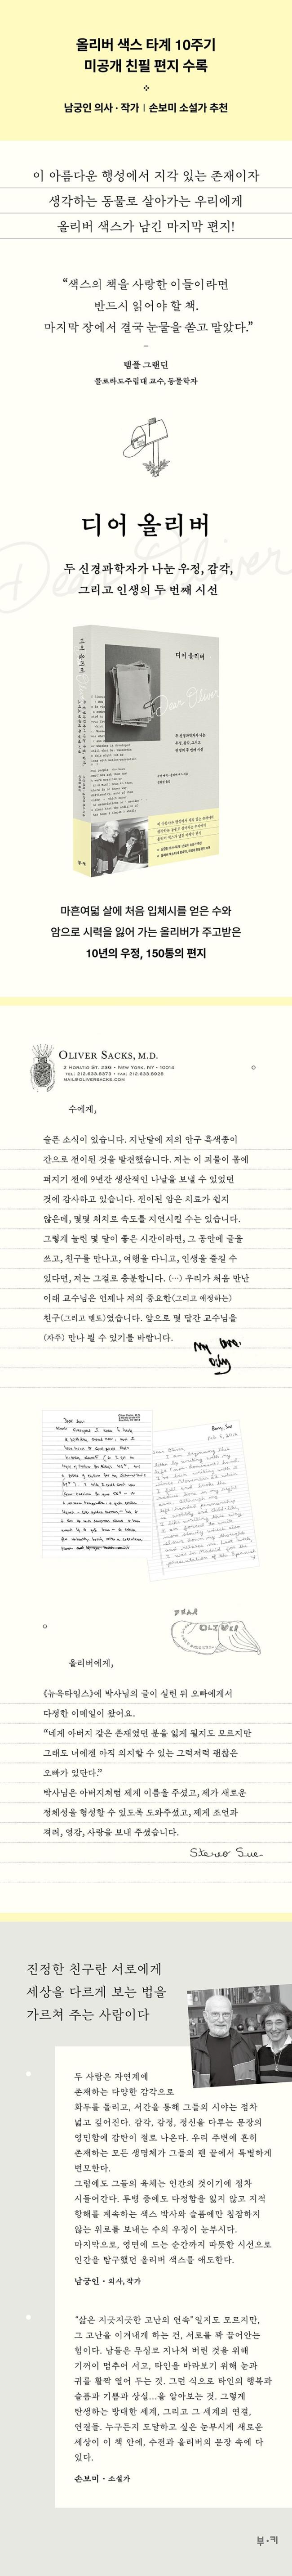 올리버 색스 타계 10주기
미공개 친필 편지 수록
남궁인 의사·작가 | 손보미 소설가 추천
이 아름다운 행성에서 지각 있는 존재이자
생각하는 동물로 살아가는 우리에게
올리버 색스가 남긴 마지막 편지!
“색스의 책을 사랑한 이들이라면
반드시 읽어야 할 책.
마지막 장에서 결국 눈물을 쏟고 말았다.”
템플 그랜딘
콜로라도주립대 교수, 동물학자
디어 올리버
Dear Oliver
두 신경과학자가 나눈 우정, 감각,
그리고 인생의 두 번째 시선
디어 올리버
Dear Oliver
마흔여덟 살에 처음 입체시를 얻은 수와
암으로 시력을 잃어 가는 올리버가 주고받은
10년의 우정, 150통의 편지
OLIVER SACKS, M.D.
2 HORATIO ST. #3G • NEW YORK, NY • 10014
TEL: 212.633.8373 • FAX: 212.633.8928
MAIL@OLIVERSACKS.COM
수에게,
슬픈 소식이 있습니다. 지난달에 저의 안구 흑색종이
간으로 전이된 것을 발견했습니다. 저는 이 괴물이 몸에
퍼지기 전에 9년간 생산적인 나날을 보낼 수 있었던
것에 감사하고 있습니다. 전이된 암은 치료가 쉽지
않은데, 몇몇 처치로 속도를 지연시킬 수는 있습니다.
그렇게 늘린 몇 달이 좋은 시간이라면, 그 동안에 글을
쓰고, 친구를 만나고, 여행을 다니고, 인생을 즐길 수
있다면, 저는 그걸로 충분합니다. (…) 우리가 처음 만난
이래 교수님은 언제나 저의 중요한(그리고 애정하는)
친구(그리고 멘토)였습니다. 앞으로 몇 달간 교수님을
(자주) 만나 뵐 수 있기를 바랍니다.
DEAR
OLIVER
올리버에게,
《뉴욕타임스》에 박사님의 글이 실린 뒤 오빠에게서
다정한 이메일이 왔어요.
“네게 아버지 같은 존재였던 분을 잃게 될지도 모르지만
그래도 너에겐 아직 의지할 수 있는 그럭저럭 괜찮은
오빠가 있단다.”
박사님은 아버지처럼 제게 이름을 주셨고, 제가 새로운
정체성을 형성할 수 있도록 도와주셨고, 제게 조언과
격려, 영감, 사랑을 보내 주셨습니다.
Stereo Sue
진정한 친구란 서로에게
세상을 다르게 보는 법을
가르쳐 주는 사람이다
두 사람은 자연계에
존재하는 다양한 감각으로
화두를 돌리고, 서간을 통해 그들의 시야는 점차
넓고 깊어진다. 감각, 감정, 정신을 다루는 문장의
영민함에 감탄이 절로 나온다. 우리 주변에 흔히
존재하는 모든 생명체가 그들의 펜 끝에서 특별하게
변모한다.
그럼에도 그들의 육체는 인간의 것이기에 점차
시들어간다. 투병 중에도 다정함을 잃지 않고 지적
항해를 계속하는 색스 박사와 슬픔에만 침잠하지
않는 위로를 보내는 수의 우정이 눈부시다.
마지막으로, 영면에 드는 순간까지 따뜻한 시선으로
인간을 탐구했던 올리버 색스를 애도한다.
남궁인 · 의사, 작가
“삶은 지긋지긋한 고난의 연속”일지도 모르지만,
그 고난을 이겨내게 하는 건, 서로를 꽉 끌어안는
힘이다. 남들은 무심코 지나쳐 버린 것을 위해
기꺼이 멈추어 서고, 타인을 바라보기 위해 눈과
귀를 활짝 열어 두는 것. 그런 식으로 타인의 행복과
슬픔과 기쁨과 상실…을 알아보는 것. 그렇게
탄생하는 방대한 세계, 그리고 그 세계의 연결,
연결들. 누구든지 도달하고 싶은 눈부시게 새로운
세상이 이 책 안에, 수전과 올리버의 문장 속에 다
있다.
손보미 · 소설가
부·키